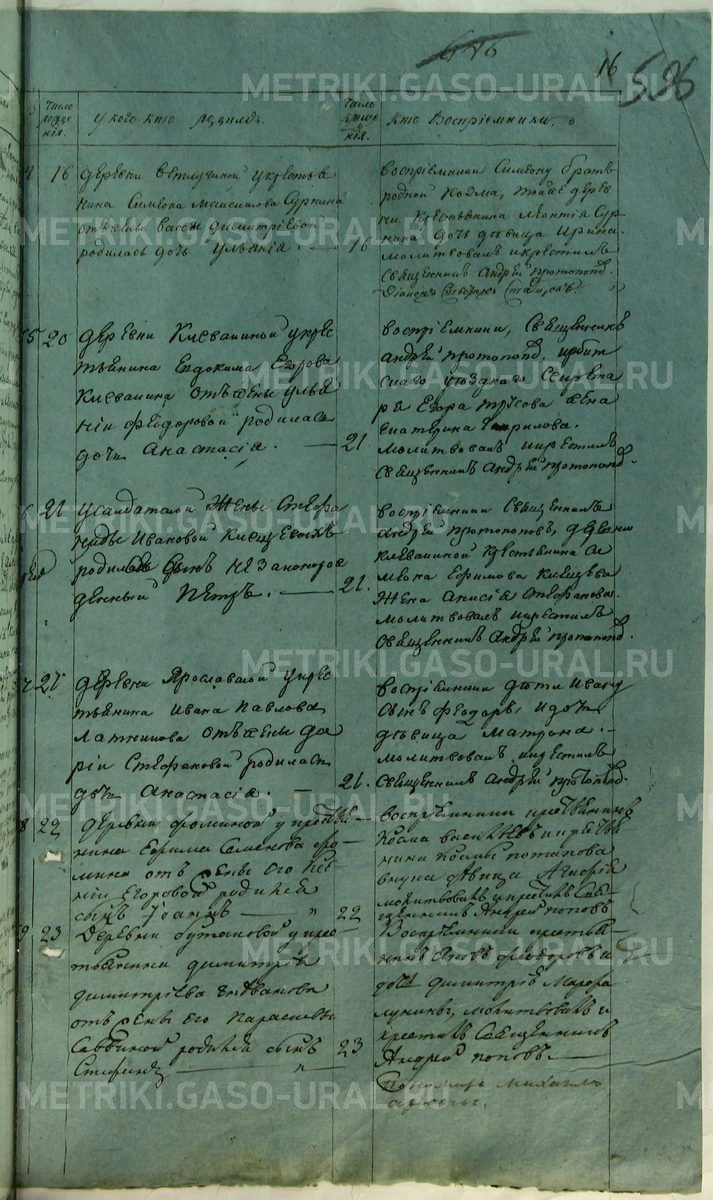 16
596
METRIKI.GASO-URAL.RU
Число рожде нія.
у кого кто родился.
Число крещенія.
кто воспріемники.
16
деревни Ветлугиной у крестья
нина Симеона Максимова Суркина
отъ жены Вассы Димитріевой
родилась дочь Уліанія.
16
воспріемники Симеону братъ
родной Козма, тойже дерев
ни крестьянина Леонтія Сур
кина дочь дѣвица Ирина.
молитвовалъ и крестилъ
священникъ Андрей Протопоповъ
20
деревни Клевакиной у крес
тьянина Евдокима Егорова
Клевакина отъ жены Улья
ніи Феодоровой родилась
дочь Анастасія.
21
воспріемники, священникъ
Андрей Протопоповъ, ирбит
скаго уѣзднаго секрета
ря Егора жена
Екатерина Гаврилова.
молитвовалъ и крестилъ
священникъ Андрей Протопоповъ.
21
у салдатской жены Стефа
ниды Ивановой Клещевой
родился сынъ незаконорож
денный Петръ.
21.
воспріемники священникъ
Андрей Протопоповъ, деревни
Клевакиной крестьянина Си
меона Ефимова Клещева
жена Анисія Стефанова.
молитвовалъ и крестилъ
священникъ Андрей Протопоповъ.
21
деревни Ярославской у крес
тьянина Ивана Павлова
Латникова отъ жены Да
ріи Стефановой родилась
дочь Анастасія.
21.
воспріемники дѣти Ивану
сынъ Феодоръ, и дочь
дѣвица Матрона.
молитвовалъ и крестилъ
священникъ Андрей Протопоповъ.
22
деревни Фоминой у крестья
нина Ефима Семенова Фо
мина отъ жены его
Егоровой родился
сынъ Іоаннъ
22
воспріемники крестьянинъ
Косма и крестья
нина Космы Потапова
внука дѣвица
молитвовалъ и крестилъ свя
щенникъ Андрей Поповъ
23
Деревни Бутаковой у крес
тьянина Димитрія
Димитріева
отъ жены его Параскевы
Саввиной родился сынъ
23
Воспріемники крестья
нинъ Яковъ Феодоровъ и
дочь Димитрія
молитвовалъ и
крестилъ священникъ
Андрей Поповъ
Пономарь Михаилъ